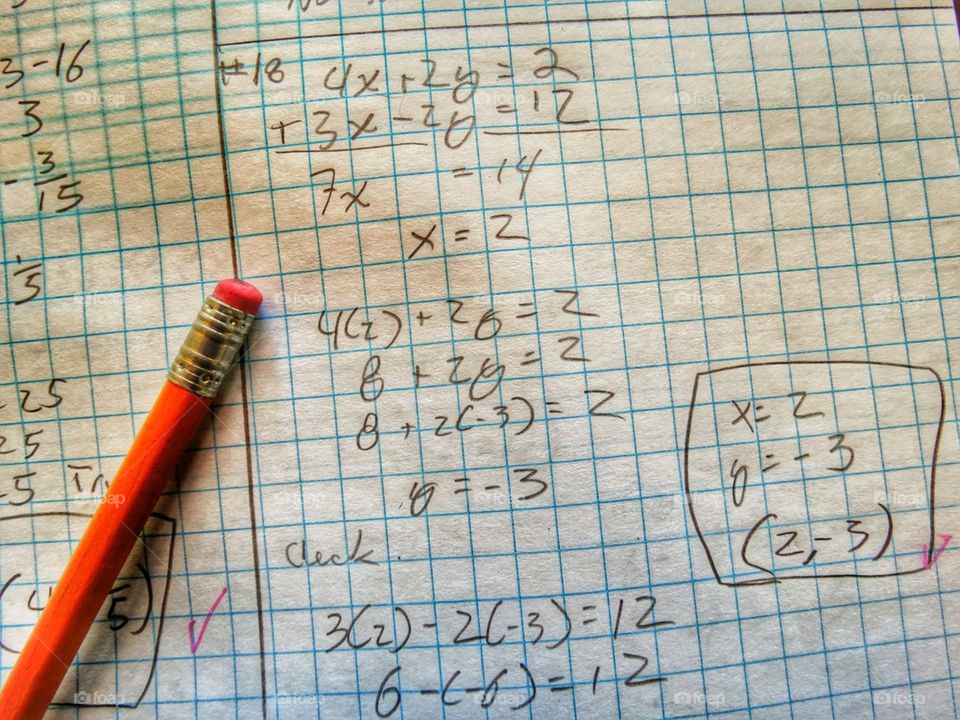 3-16
3
- 3/15
/5
25
25
-5
5)
#18
4x + 2y = 2
+ 3x - 2y = 12
7x = 14
x = 2
4(2) + 2y = 2
8 + 2y = 2
8 + 2(-3) = 2
y = -3
check.
3(2) - 2(-3) = 12
6 - (-6) = 12
x = 2
y = -3
(2, -3)
foap